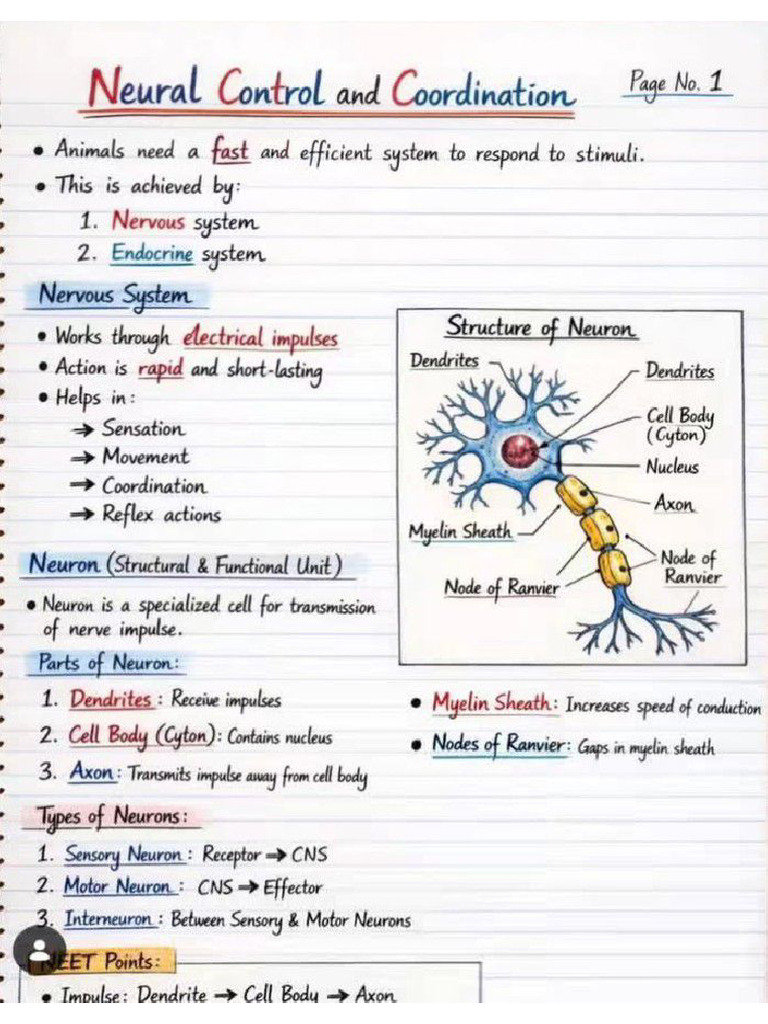 Neural Control and Coordination
Page No. 1
• Animals need a fast and efficient system to respond to stimuli.
• This is achieved by:
1. Nervous system
2. Endocrine system
Nervous System
• Works through electrical impulses
• Action is rapid and short-lasting
• Helps in:
→ Sensation
→ Movement
→ Coordination
→ Reflex actions
Structure of Neuron
Dendrites
Dendrites
Cell Body
(Cyton)
Nucleus
Axon
Myelin Sheath
Node of
Ranvier
Node of Ranvier
Neuron (Structural & Functional Unit)
• Neuron is a specialized cell for transmission
of nerve impulse.
Parts of Neuron:
1. Dendrites: Receive impulses
2. Cell Body (Cyton): Contains nucleus
3. Axon: Transmits impulse away from cell body
• Myelin Sheath: Increases speed of conduction
• Nodes of Ranvier: Gaps in myelin sheath
Types of Neurons:
1. Sensory Neuron: Receptor → CNS
2. Motor Neuron: CNS → Effector
3. Interneuron: Between Sensory & Motor Neurons
NEET Points:
• Impulse: Dendrite → Cell Body → Axon